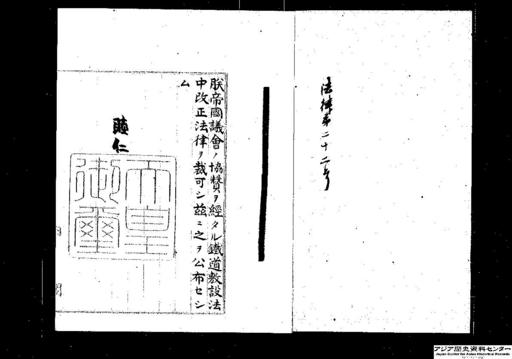 法律第二十二号
朕帝國議會ノ協賛ヲ經タル鐵道敷設法
中改正法律ヲ裁可シ茲ニ之ヲ公布セシ
ム
睦仁
天皇
御璽
アジア歴史資料センター
Japan Center for Asian Historical Records